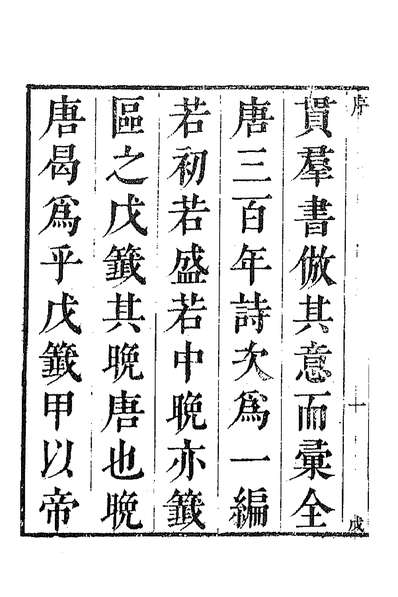 序 十 戊
貫羣書倣其意而彙全
唐三百年詩次爲一編
若初若盛若中晩亦籖
區之戊籖其晩唐也晩
唐曷爲乎戊籖甲以帝